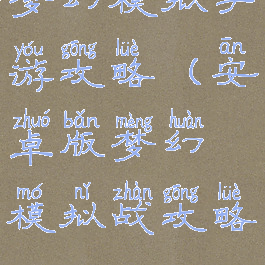 梦幻模拟手
yóu gōng lüè ān
游攻略（安
zhuó bǎn mèng huàn
卓版梦幻
mó nǐ zhàn gōng lüè
模拟战攻略